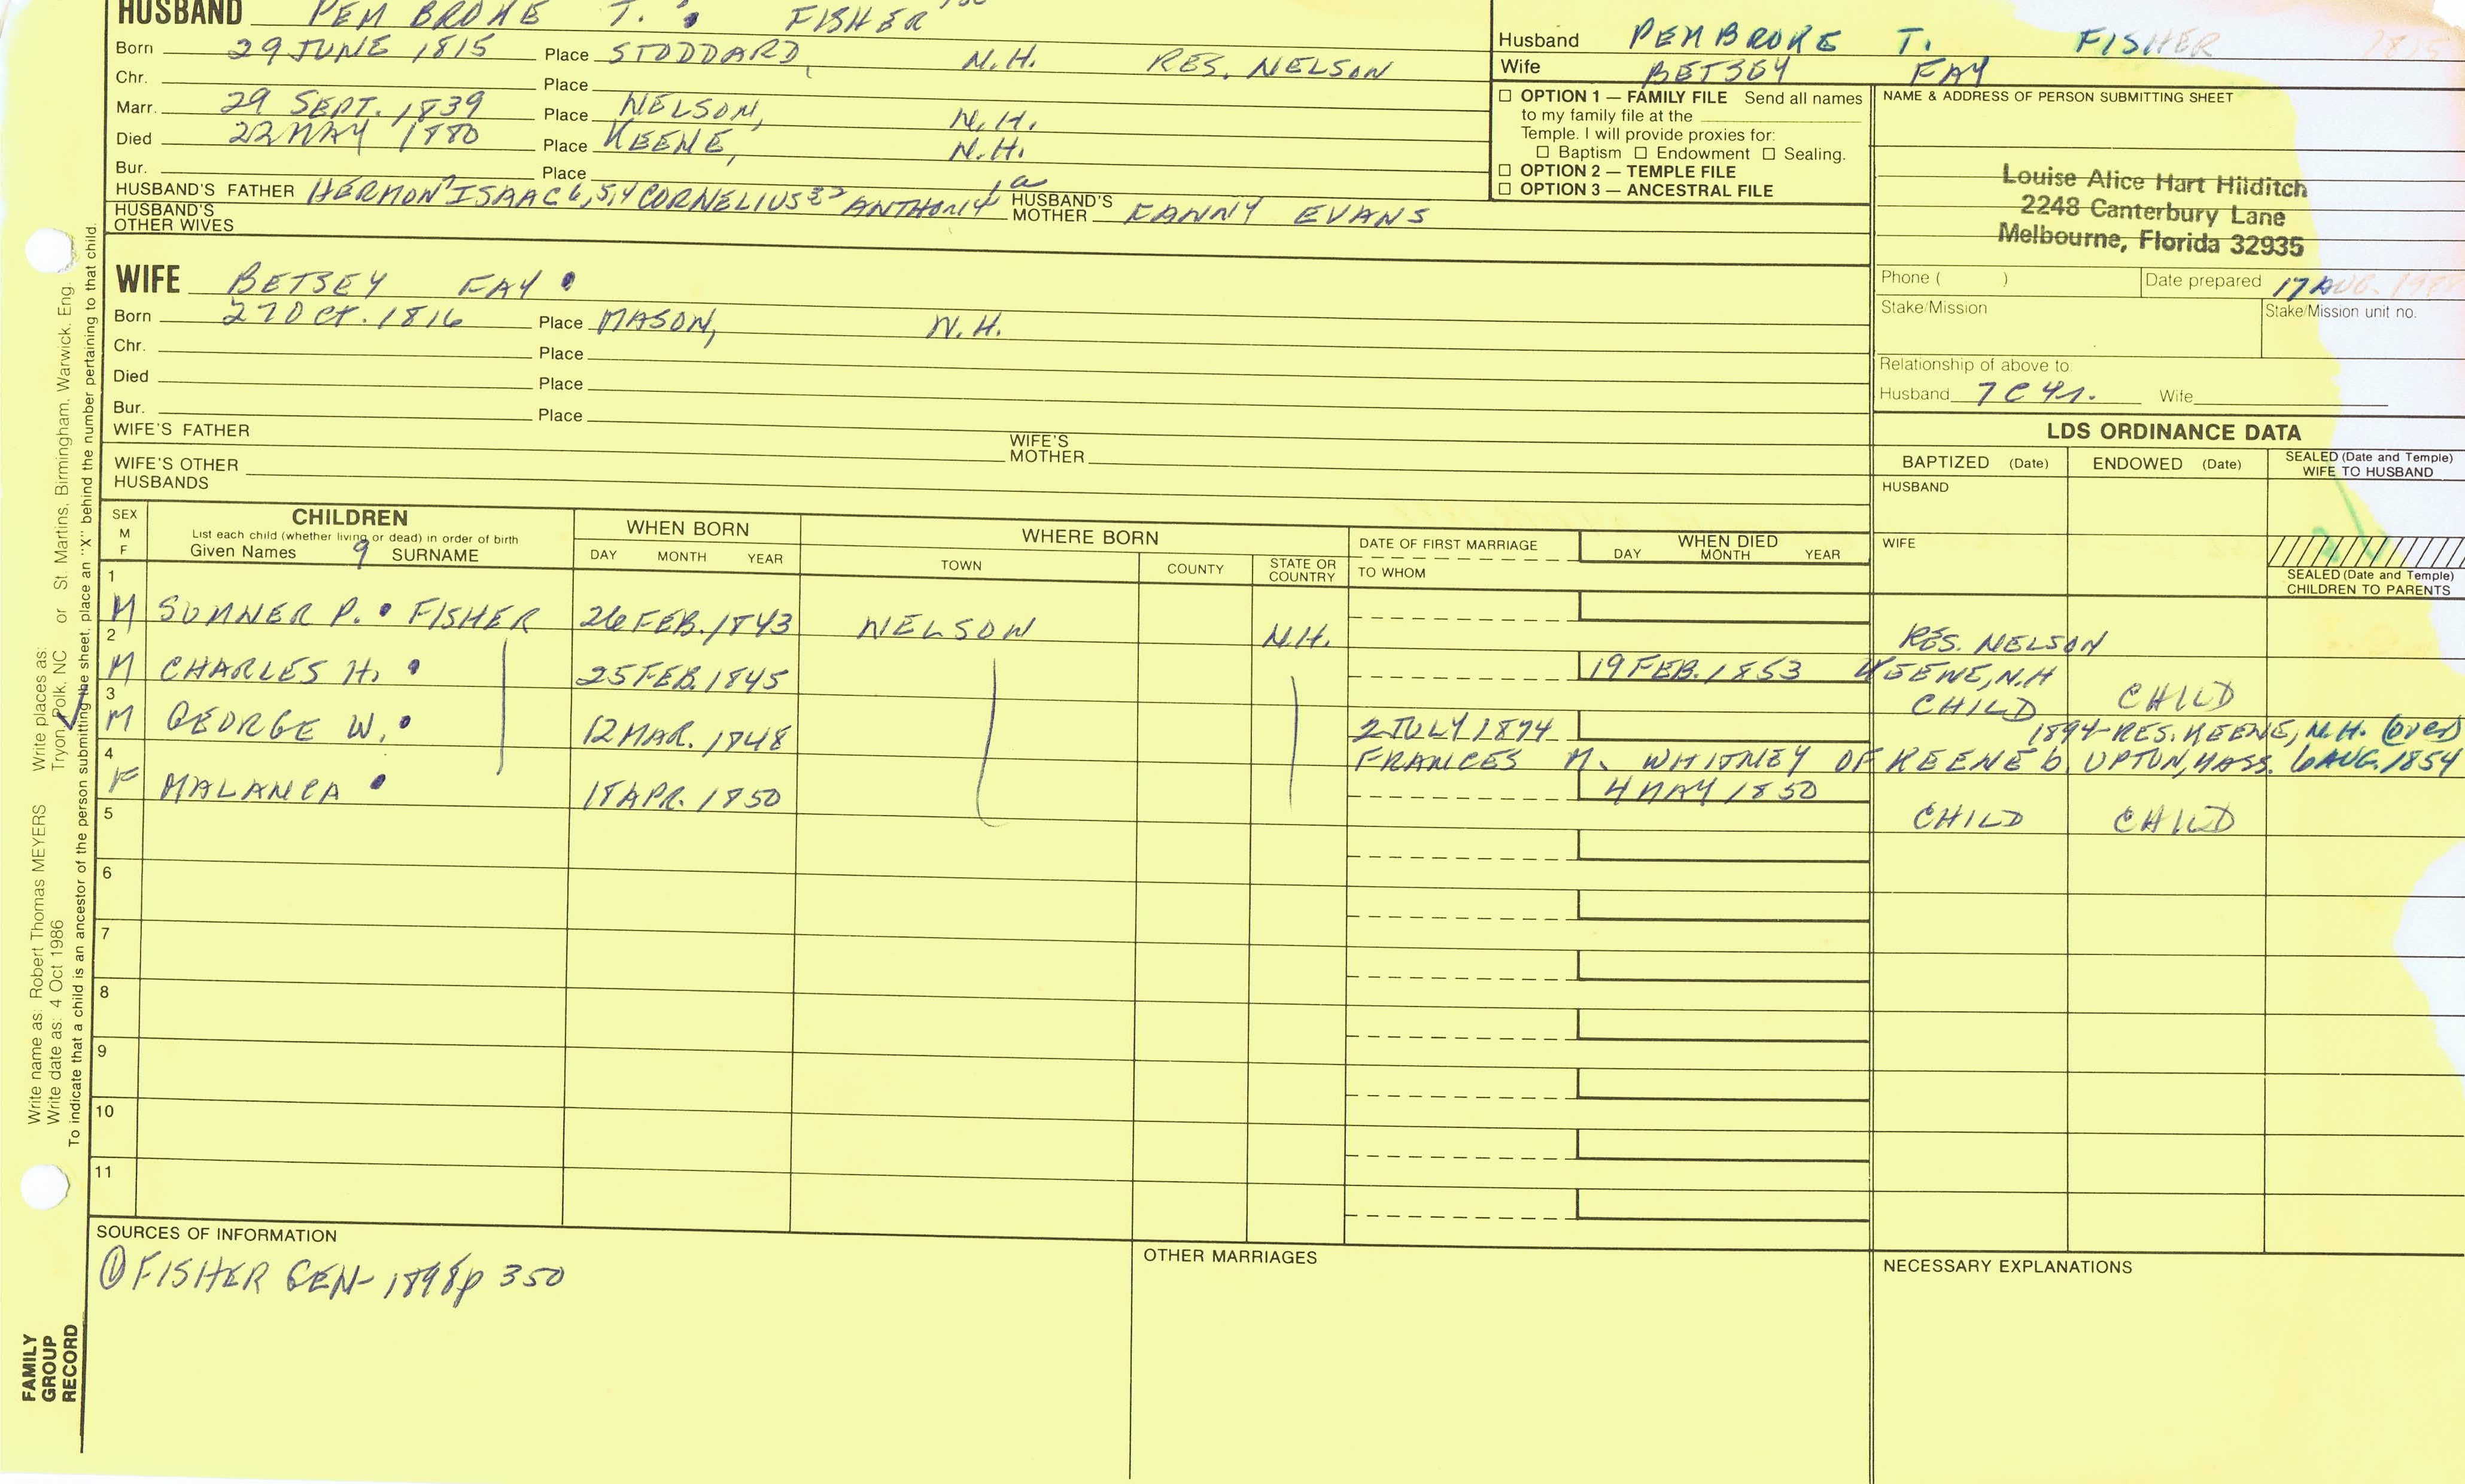 HUSBAND PEMBROKE T. FISHER
Born 29 JUNE 1815 Place STODDARD, N.H. RES. NELSON
Chr. Place
Marr. 29 SEPT. 1839 Place NELSON, N.H.
Died 22 MAY 1880 Place KEENE, N.H.
Bur. Place
HUSBAND'S FATHER HERMON7 ISAAC 6,5,4 CORNELIUS 3,2 ANTHONY 1a HUSBAND'S MOTHER FANNY EVANS
HUSBAND'S OTHER WIVES
WIFE BETSEY FAY
Born 27 OCT. 1816 Place MASON, N.H.
Chr. Place
Died Place
Bur. Place
WIFE'S FATHER WIFE'S MOTHER
WIFE'S OTHER HUSBANDS
Husband PEMBROKE T. FISHER 1815
Wife BETSEY FAY
☐ OPTION 1 — FAMILY FILE Send all names
to my family file at the
Temple. I will provide proxies for:
☐ Baptism ☐ Endowment ☐ Sealing.
☐ OPTION 2 — TEMPLE FILE
☐ OPTION 3 — ANCESTRAL FILE
NAME & ADDRESS OF PERSON SUBMITTING SHEET
Louise Alice Hart Hilditch
2248 Canterbury Lane
Melbourne, Florida 32935
Phone ( ) Date prepared 17 AUG.
Stake/Mission Stake/Mission unit no.
Relationship of above to
Husband 7C4r. Wife
LDS ORDINANCE DATA
BAPTIZED (Date) ENDOWED (Date) SEALED (Date and Temple) WIFE TO HUSBAND
HUSBAND
WIFE
SEALED (Date and Temple) CHILDREN TO PARENTS
SEX M F
CHILDREN
List each child (whether living or dead) in order of birth
Given Names 9 SURNAME
WHEN BORN
DAY MONTH YEAR
WHERE BORN
TOWN COUNTY STATE OR COUNTRY
DATE OF FIRST MARRIAGE
TO WHOM
WHEN DIED
DAY MONTH YEAR
1 M SUMNER P. FISHER 26 FEB. 1843 NELSON N.H. RES. NELSON
2 M CHARLES H. 25 FEB. 1845 19 FEB. 1853 KEENE, N.H CHILD CHILD
3 M GEORGE W. 12 MAR. 1848 2 JULY 1874 1894-RES. KEENE, N.H. (over)
FRANCES M. WHITNEY OF KEENE b. UPTON, MASS. 6 AUG. 1854
4 F MALANCA 18 APR. 1850 4 MAY 1850 CHILD CHILD
5
6
7
8
9
10
11
SOURCES OF INFORMATION
① FISHER GEN- 1898 p 350
OTHER MARRIAGES
NECESSARY EXPLANATIONS
Write name as: Robert Thomas MEYERS Write places as:
Write date as: 4 Oct 1986 Tryon, Polk, NC or St. Martins, Birmingham, Warwick, Eng.
To indicate that a child is an ancestor of the person submitting the sheet, place an "X" behind the number pertaining to that child.
FAMILY
GROUP
RECORD